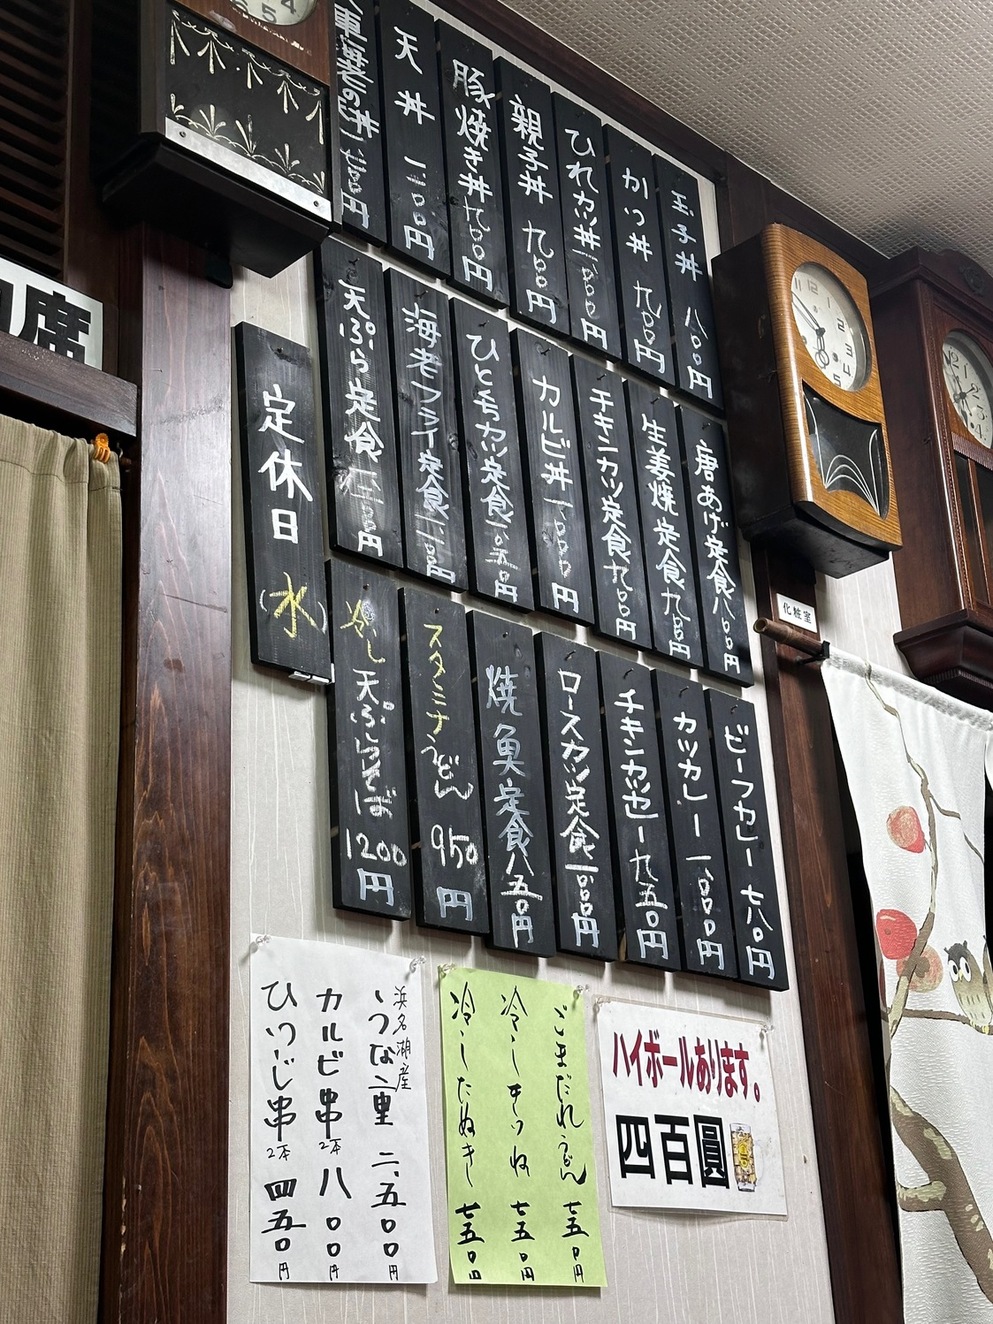 玉子丼 八〇〇円
かつ丼 九〇〇円
ひれカツ丼 一、〇〇〇円
親子丼 九〇〇円
豚焼き丼 九〇〇円
天丼 一、二〇〇円
唐あげ定食 八〇〇円
生姜焼定食 九〇〇円
チキンカツ定食 九〇〇円
カルビ丼 一、〇〇〇円
ひとくちカツ定食 一、〇五〇円
海老フライ定食 一、一〇〇円
天ぷら定食
定休日
(水)
ビーフカレー 七八〇円
カツカレー 一、〇〇〇円
チキンカツカレー 九五〇円
ロースカツ定食 一、〇〇〇円
焼魚定食 八五〇円
スタミナうどん
950
円
冷し天ぷらそば
1200
円
浜名湖産
うな重 二、五〇〇円
カルビ串 2本 八〇〇円
ひつじ串 2本 四五〇円
ごまだれうどん 七五〇円
冷しきつね 七五〇円
冷したぬき 七五〇円
ハイボールあります。
四百圓
化粧室
席